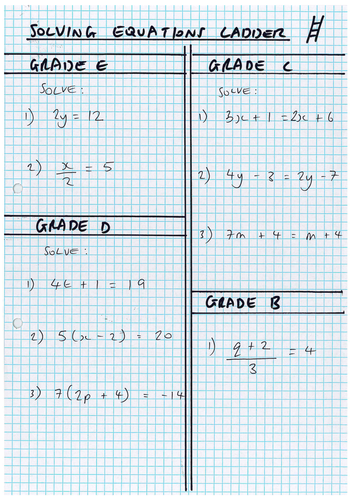 SOLVING EQUATIONS LADDER
GRADE E
SOLVE:
1) 2y = 12
2) x/2 = 5
GRADE D
SOLVE:
1) 4t + 1 = 19
2) 5(x - 2) = 20
3) 7(2p + 4) = -14
GRADE C
SOLVE:
1) 3x + 1 = 2x + 6
2) 4y - 3 = 2y - 7
3) 7m + 4 = m + 4
GRADE B
1) q + 2
3
= 4